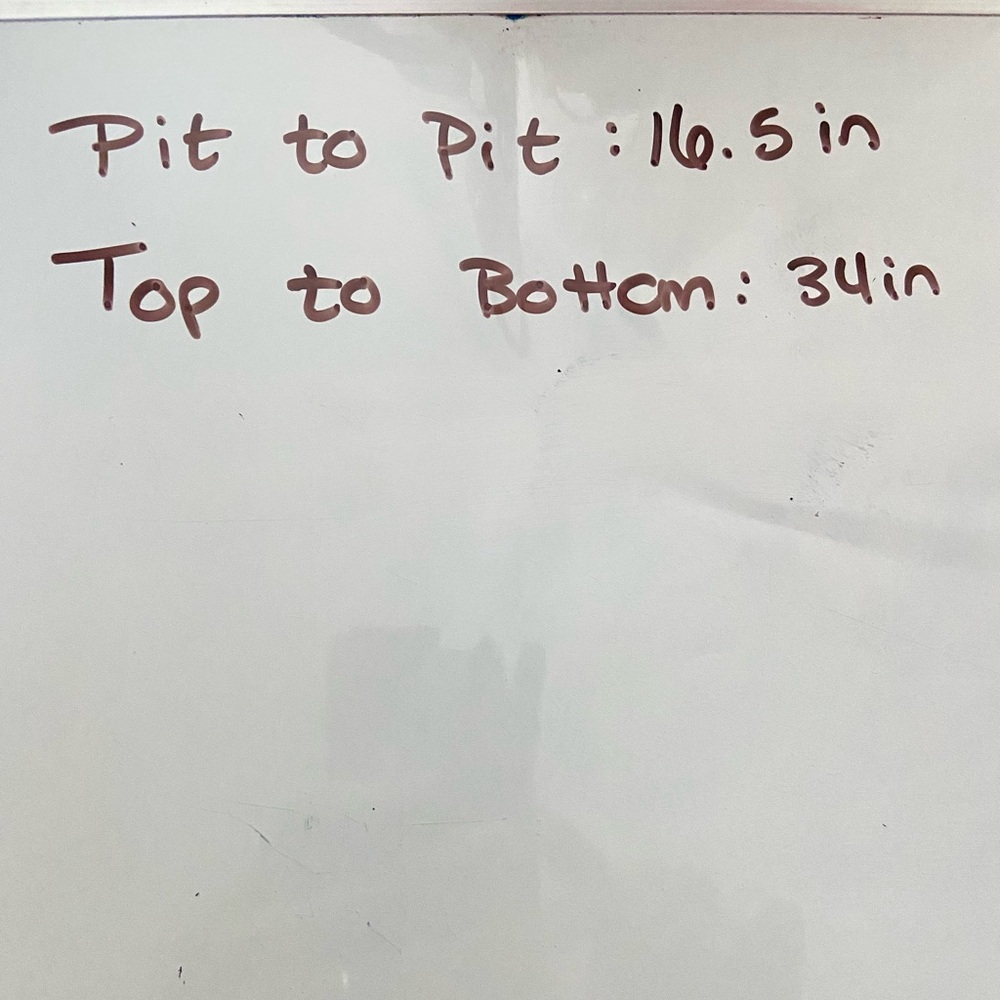 Pit to Pit : 16.5 in
Top to Bottom : 34 in